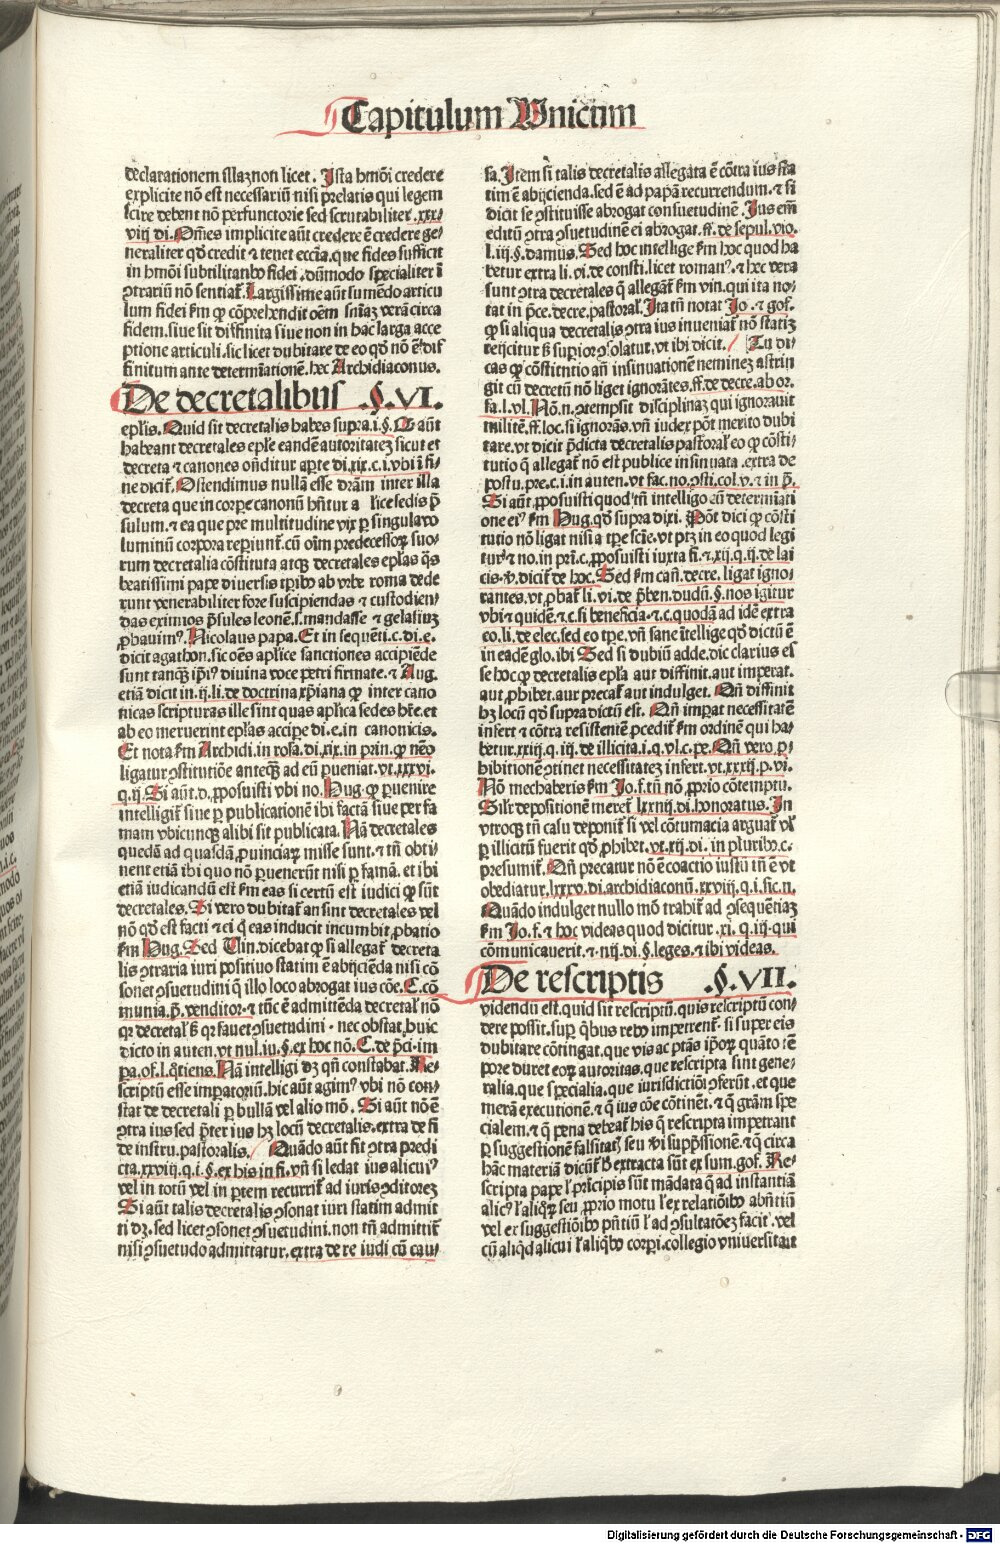 Capitulum Vnicum
declarationem illaꝫ non licet. Ista hmõi credere
explicite nõ est necessariũ nisi prelatis qui legem
scire debent nõ perfunctorie sed scrutabiliter .xxx⸗
viij di. Oẽs implicite aũt credere ẽ credere ge⸗
neraliter qd̃ credit ⁊ tenet eccĩa. que fides sufficit
in hmõi subtilitatibꝰ fidei. dũmodo specialiter ĩ
ꝯtrariũ nõ sentiat̃. Largissime aũt sumẽdo articu
lum fidei fm ꝙ cõprehendit oẽm sñiaꝫ verã circa
fidem. siue sit diffinita siue non in hac larga acce
ptione articuli. sic licet dubitare de eo qd̃ nõ ẽ dif
finitum ante determĩationẽ. hec Archidiaconus.
De decretalibus .§.VI.
ep̃lis. Quid sit decretalis habes supra .i. §. Et aũt
habeant decretales ep̃le eandẽ autoritateꝫ sicut et
decreta ⁊ canones oñditur aꝑte di. xix. c. i. vbi ĩ fi⸗
ne dicit̃. Ostendimus nullã esse dr̃am inter illa
decreta que in corpe canonũ hñtur a lice sedis p̃
sulum. ⁊ ea que pre multitudine vix ꝑ singula vo
luminũ corpora reꝑiunt̃. cũ oĩm predecessoꝝ suo⸗
rum decretalia cõstituta atqꝫ decretales ep̃las q̃s
beatissimi pape diuersis tꝑibꝰ ab vrbe roma dede
runt venerabiliter fore suscipiendas ⁊ custodien⸗
das eximios p̃sules leonẽ. s. mandasse ⁊ gelasiuꝫ
ꝓbauimꝰ. Nicolaus papa. Et in sequẽti. c. di. e.
dicit agathon. sic oẽs ap̃lice sanctiones accipiẽde
sunt tanqꝫ ip̃iꝰ diuina voce petri firmate. ⁊ Aug.
etiã dicit in .ij. li. de doctrina xp̃iana ꝙ inter cano
nicas scripturas ille sint quas ap̃lica sedes hr̃e. et
ab eo meruerint ep̃las accipe di. e. in canonicis.
Et nota fm Archidi. in rosa. di. xix. in prin. ꝙ nẽo
ligatur ꝯstitutiõe anteqꝫ ad eũ ꝑueniat. vt .xxxvi.
q. ij. Si aũt. d. ꝓposuisti vbi no. Hug. ꝙ ꝑuenire
intelligit̃ siue ꝑ publicationẽ ibi factã siue per fa
mam vbicunqꝫ alibi sit publicata. Nã decretales
quedã ad quasdã ꝓuinciaꝝ misse sunt. ⁊ tñ obti⸗
nent etiã ibi quo nõ ꝑuenerũt nisi ꝑ famã. et ibi
etiã iudicandũ est fm eas si certũ est iudici ꝙ sũt
decretales. Si vero dubitat̃ an sint decretales vel
nõ qd̃ est facti ⁊ ei q̃ eas inducit incumbit ꝓbatio
fm Hug. Sed Vin. dicebat ꝙ si allegat̃ decreta
lis ꝯtraria iuri positiuo statim ẽ abijciẽda nisi cõ
sonet ꝯsuetudini q̃ illo loco abrogat ius cõe. C. cõ
munia. p̃. venditor. ⁊ tũc ẽ admittẽda decretal̃ nõ
qr decretal̃ s̃ qr fauet ꝯsuetudini. nec obstat huic
dicto in auten. vt nul. iu. §. ex hoc nõ. C. de p̃ci. im
pa. of. l. q̃tiens. Nã intelligi dꝫ qñ constabat. Re⸗
scriptũ esse imperatoriũ. hic aũt agimꝰ vbi nõ con⸗
stat de decretali ꝑ bullã vel alio mõ. Si aũt nõ ẽ
ꝯtra ius sed p̃ter ius hꝫ locũ decretalis. extra de fi
de instru. pastoralis. Quãdo aũt fit ꝯtra predi
cta. xxviij. q. i. §. ex his in fi. vñ si ledat ius alicuiꝰ
vel in totũ vel in ꝑtem recurrit̃ ad iuris ꝯditoreꝫ
Si aũt talis decretalis ꝯsonat iuri statim admit
ti dꝫ. sed licet ꝯsonet ꝯsuetudini. non tñ admittit̃
nisi ꝯsuetudo admittatur. extra de re iudi cũ cau⸗
sa. Item si talis decretalis allegata ẽ cõtra ius sta
tim ẽ abijcienda. sed ẽ ad papã recurrendum. ⁊ si
dicit se ꝯstituisse abrogat consuetudinẽ. Ius em̃
editũ ꝯtra ꝯsuetudinẽ ei abrogat. ff. de sepul. vio.
l. iij. §. damus. Sed hoc intellige fm hoc quod ha
betur extra li. vi. de consti. licet romanꝰ. ⁊ hec vera
sunt ꝯtra decretales q̃ allegãt̃ fm vin. qui ita no⸗
tat in p̃ce. decre. pastoral̃. Ita tñ notat Jo. ⁊ gof.
ꝙ si aliqua decretalis ꝯtra ius inueniat̃ nõ statiꝫ
reijcitur s̃ superior ꝯsolatur. vt ibi dicit. In di⸗
cas ꝙ cõstitutio añ insinuationẽ nemineꝫ astrin
git cũ decretũ nõ liget ignorãtes. ff. de decre. ab or.
fa. l. vl. Nõ. n. ꝯtempsit disciplinaꝫ qui ignorauit
militẽ. ff. loc. si ignorãs. vñ iudex põt merito dubi
tare. vt dicit p̃dicta decretalis pastoral̃ eo ꝙ cõsti⸗
tutio q̃ allegat̃ nõ est publice insinuata. extra de
postu. pre. c. i. in auten. vt fac. no. ꝯsti. col. v. ⁊ in p̃.
Si aũt ꝓposuisti quod tñ intelligo cũ determĩati
one eiꝰ fm Hug. qd̃ supra dixi. Põt dici ꝙ cõsti
tutio nõ ligat nisi a tꝑe sciẽ. vt ptꝫ in eo quod legi
turꝰ ⁊ no. in pri. c. ꝓposuisti iuxta fi. ⁊ .xij. q. ij. de lai
cis. ꝟ. dicit̃ de hoc. Sed fm cañ. decre. ligat igno⸗
rantes. vt ꝓbat̃ li. vi. de p̃ben. dudũ. §. nos igitur
vbi ⁊ quidẽ. ⁊ c. si beneficia. ⁊ c. quodã ad idẽ extra
eo. li. de elec. sed eo tꝑe. vñ sane ĩtellige qd̃ dictũ ẽ
in eadẽ glo. ibi Sed si dubiũ adde. dic clarius es
se hoc ꝙ decretalis ep̃la aut diffinit. aut imperat.
aut ꝓhibet. aut precat̃ aut indulget. Qñ diffinit
hꝫ locũ qd̃ supra dictũ est. Qñ imꝑat necessitatẽ
infert ⁊ cõtra resistentẽ ꝓcedit̃ fm ordinẽ qui ha⸗
betur. xxiij. q. iij. de illicita. i. q. vl. c. pe. Qñ vero ꝓ⸗
hibitionẽ ꝯtinet necessitateꝫ infert. vt. xxxij. p. vi.
Nõ mechaberis fm Jo. f. tñ nõ ꝓprio cõtemptu.
Sil̃r depositionẽ meret̃. lxxxij. di. honoratus. In
vtroqꝫ tñ casu deponit̃ si vel cõtumacia arguat̃ vl̃
ꝑ illicitũ fuerit qd̃ ꝓhibet. vt. xij. di. in pluribꝰ. c.
presumit̃. Qñ precatur nõ ẽ coactio iustũ tñ ẽ vt
obediatur. lxxxv. di. archidiaconũ. xxviij. q. i. sic. n.
Quãdo indulget nullo mõ trahit̃ ad ꝯsequẽtiaꝫ
fm Jo. f. ⁊ hoc videas quod dicitur. xi. q. iij. qui
cõmunicauerit. ⁊ .iiij. di. §. leges. ⁊ ibi videas.
De rescriptis .§.VII.
videndũ est. quid sit rescriptũ. quis rescriptũ con⸗
dere possit. suꝑ q̃bus rebꝰ impetrent̃. si super eis
dubitare cõtingat. que vis ac ptãs ip̃oꝝ quãto tẽ
pore duret eoꝝ autoritas. que rescripta sint gene⸗
ralia. que specialia. que iurisdictiõẽ ꝯferũt. et que
merã executionẽ. ⁊ q̃ ius cõe cõtinẽt. ⁊ q̃ grãm spe
cialem. ⁊ q̃ pena debeat̃ his q̃ rescripta impetrant
ꝑ suggestionẽ falsitatꝭ seu vĩ supp̃ssionẽ. ⁊ q̃ circa
hãc materiã dicũt̃ ꝟ extracta sũt ex sum. gof. Re⸗
scripta pape l̃ prĩcipis sũt mãdata q̃ ad instantiã
alicꝰ l̃ aliqꝝ seu ꝓprio motu l̃ ex relatiõibꝰ abñtiũ
vel ex suggestiõibꝰ pñtiũ l̃ ad ꝯsultatõeꝫ facit. vel
cũ aliqd̃ alicui l̃ aliqbꝰ corpi. collegio vniuersitati
Digitalisierung gefördert durch die Deutsche Forschungsgemeinschaft - DFG